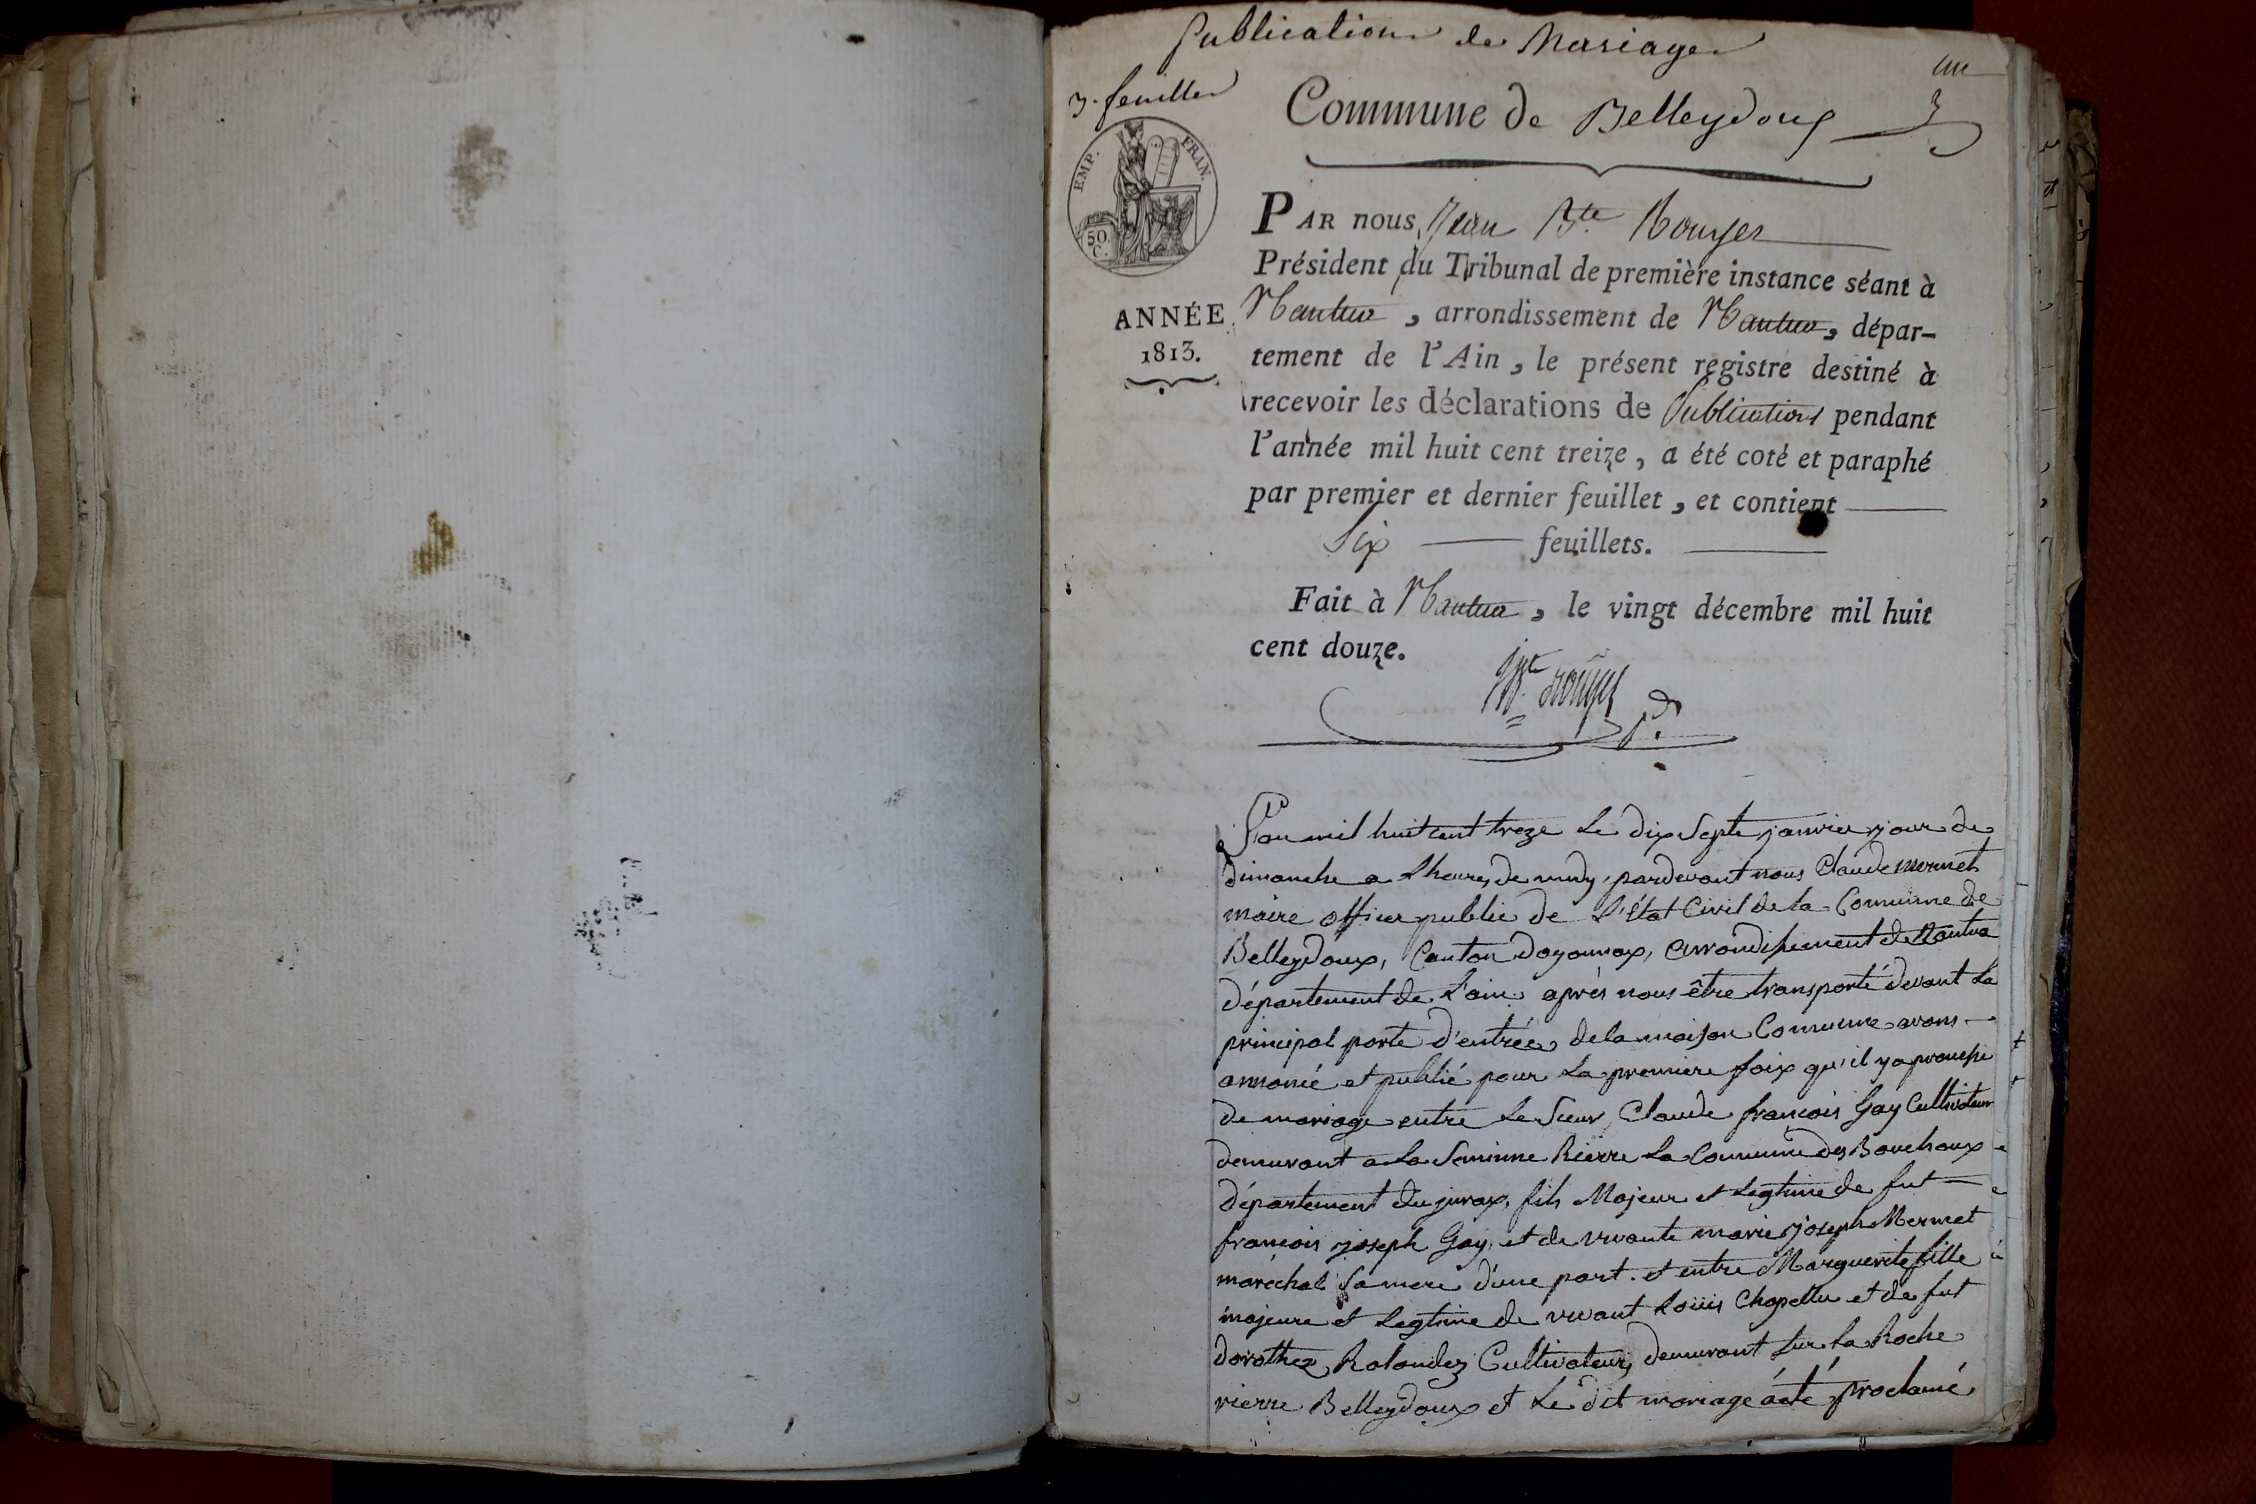 Publication de Mariage
un
3. feuilles
Commune de Belleydoux
3
EMP. FRAN.
50.
C.
PAR nous, Jean Bte Rouyer
Président du Tribunal de première instance séant à
ANNÉE
1813.
Nantua, arrondissement de Nantua, dépar-
tement de l'Ain, le présent registre destiné à
recevoir les déclarations de Publications pendant
l'année mil huit cent treize, a été coté et paraphé
par premier et dernier feuillet, et contient
Six feuillets.
Fait à Nantua, le vingt décembre mil huit
cent douze.
JBte Rouyer
Pd.
L'an mil huit cent treze Le dix Septe janvier jour de
dimanche a heures de midy, pardevant nous Claude Mermet
maire officier public de L'état Civil de la Commune de
Belleydoux, Canton doyonnax, arrondissement de Nantua
département de L'ain après nous être transporté devant La
principal porte d'entrée de la maison Commune avons
annoncé et publié pour La premiere foix qu'il y a promesse
de mariage entre Le Sieur Claude françois Gay Cultivateur
demeurant a La Seminne Rierre La Commune des Bouchoux
département du jurax, fils Majeur et Legtime de fut
françois joseph Gay, et de vivante marie joseph Mermet
maréchal Sa mere d'une part. et entre Marguerite fille
majeure et Legtime de vivant Loüis Chapellu et de fut
dorothez Rolandez Cultivateur, demeurant Sur La Roche
rierre Belleydoux et Le dit mariage áété proclamé